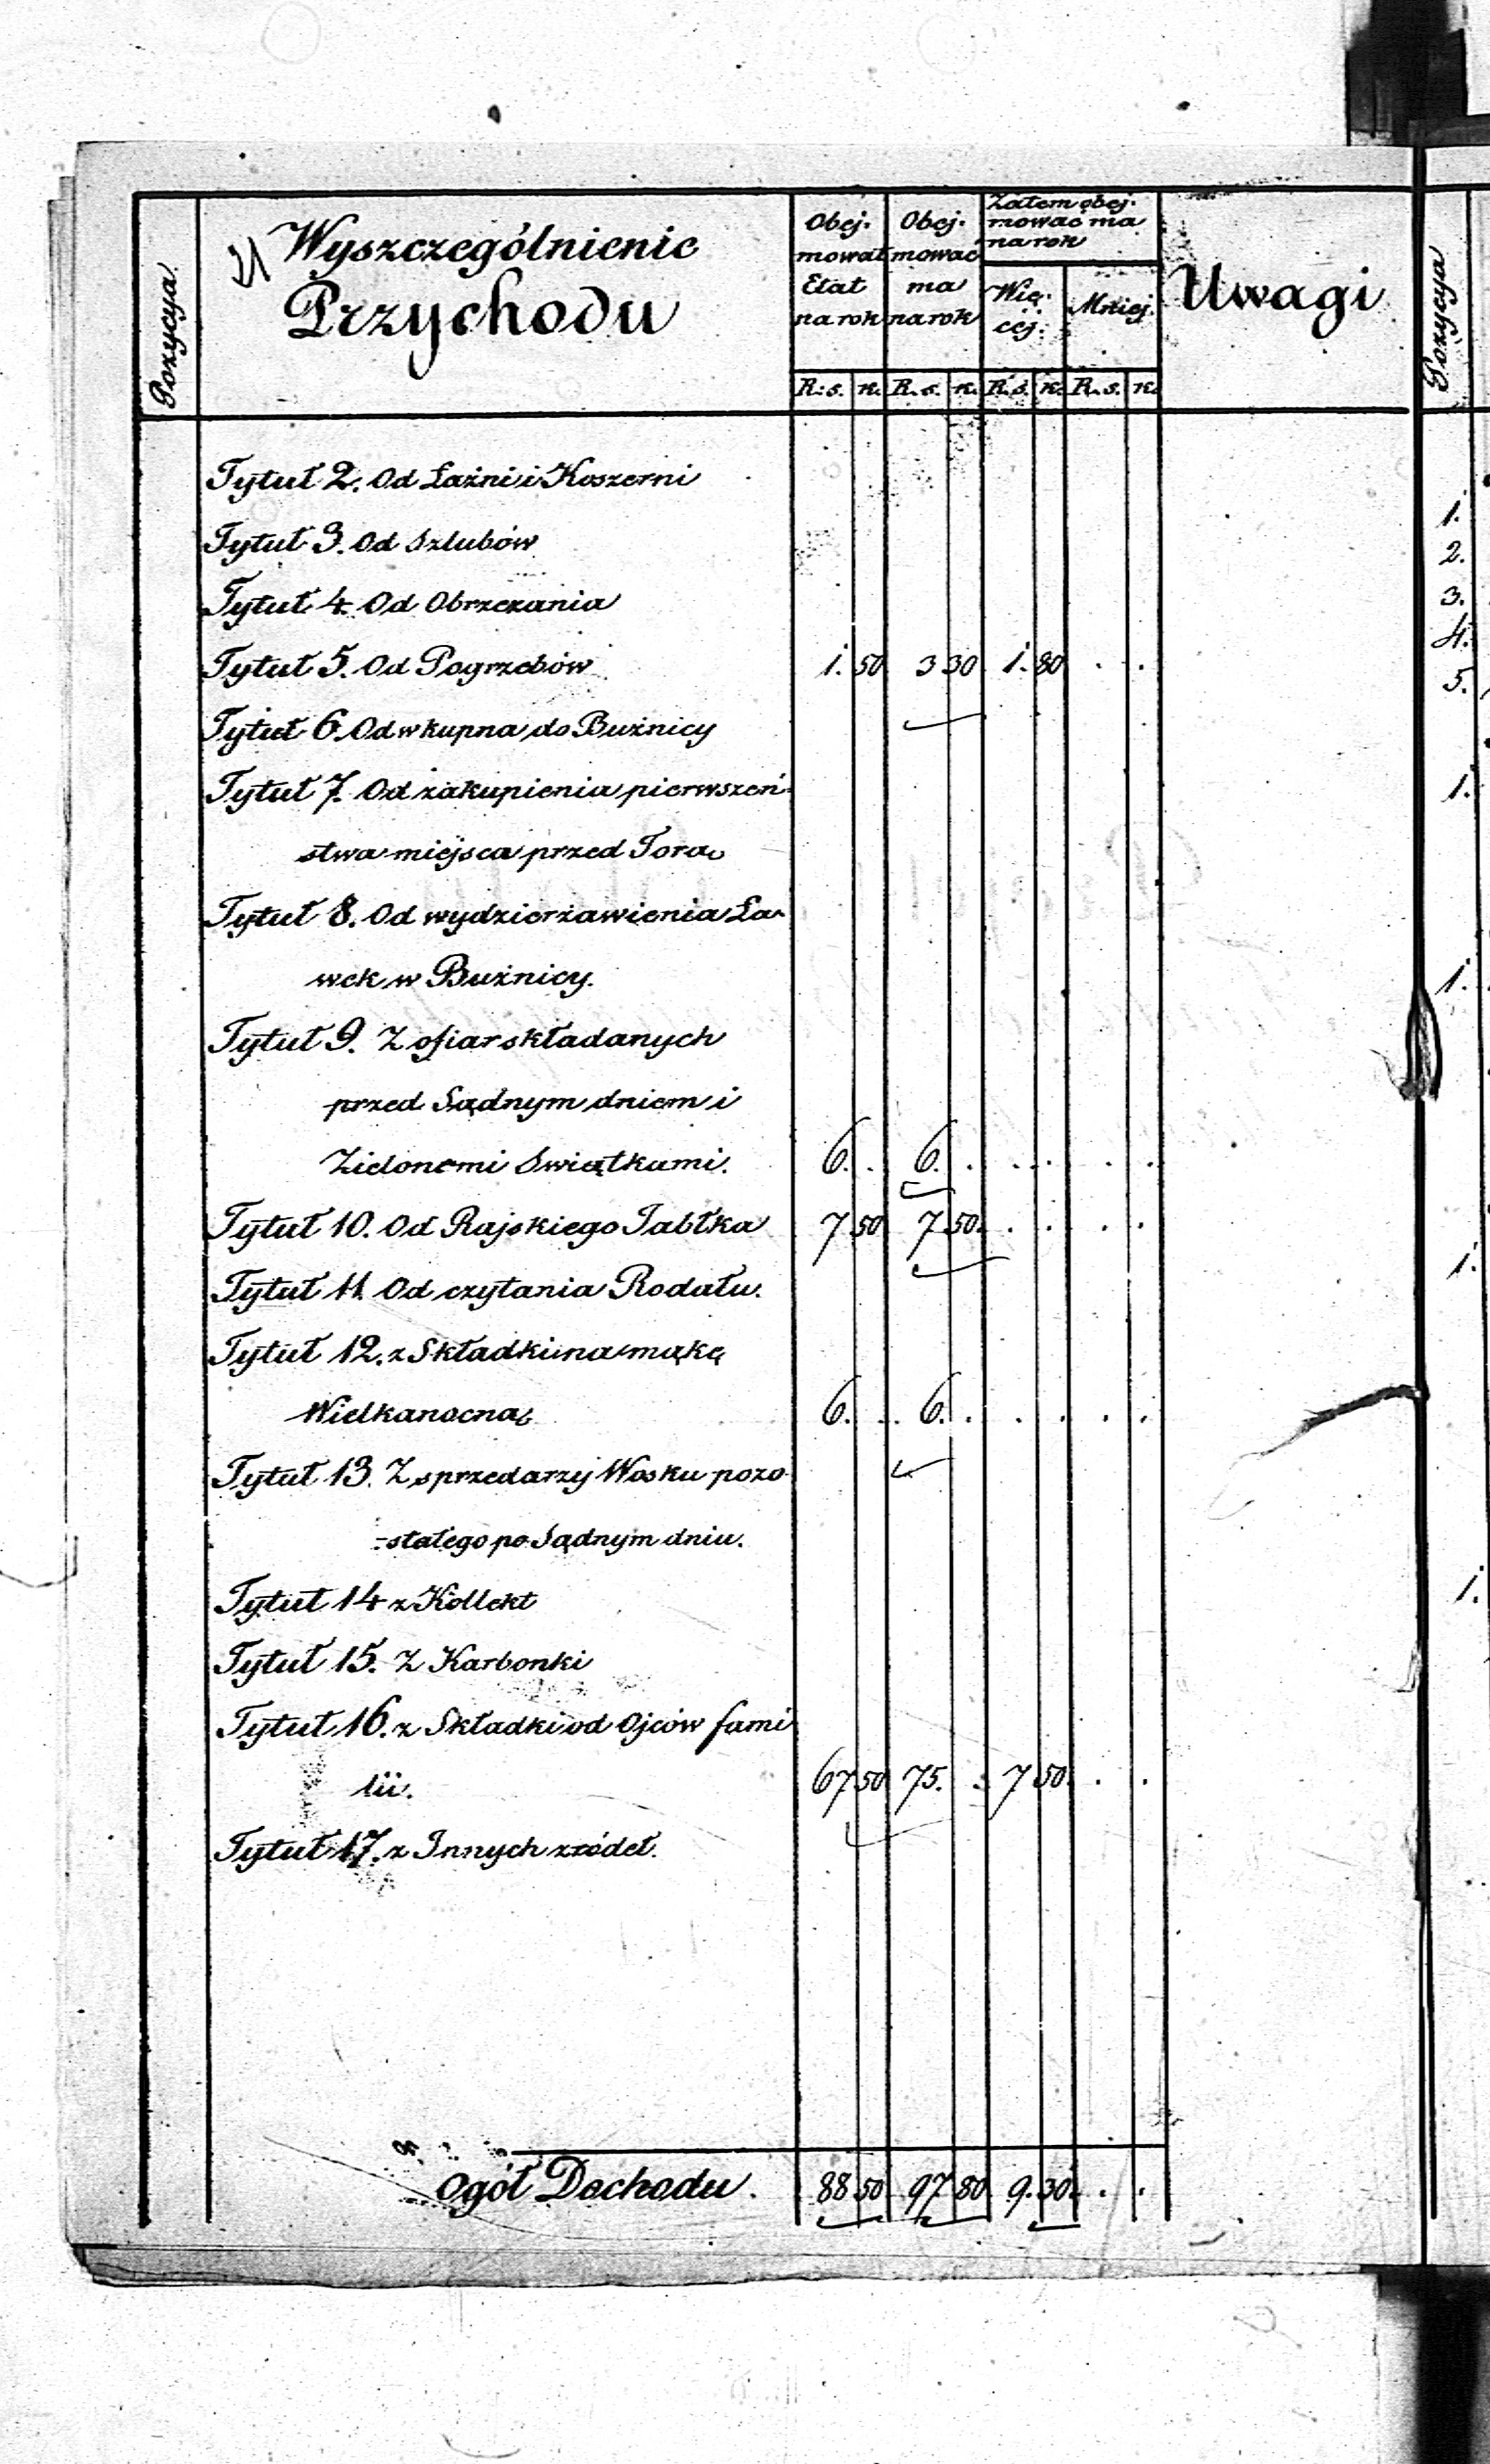 Pozycya
2) Wyszczególnienie
Przychodu
Obej-
mował
Etat
na rok
Obej-
mować
ma
na rok
Zatem obej-
mować ma
na rok
Wię-
cej.
Mniej.
Uwagi
R. s. k. R. s. k. R. s. k. R. s. k.
Tytuł 2. Od Łaźni i Koszerni
Tytuł 3. Od Szlubów
Tytuł 4. Od Obrzezania
Tytuł 5. Od Pogrzebów 1. 50 3 30 1. 80 . .
Tytuł 6. Od wkupna do Bużnicy
Tytuł 7. Od zakupienia pierwszeń-
stwa miejsca przed Torą
Tytuł 8. Od wydzierżawienia Ła-
wek w Bużnicy.
Tytuł 9. Z ofiar składanych
przed Sądnym dniem i
Zielonemi Swiątkami. 6. . 6. . . . . .
Tytuł 10. Od Rajskiego Jabłka 7 50 7 50. . . . .
Tytuł 11. Od czytania Rodału.
Tytuł 12. z Składki na mąkę
Wielkanocną 6. . 6. . . . . .
Tytuł 13. Z sprzedarzy Wosku pozo-
-stałego po Sądnym dniu.
Tytuł 14 z Kollekt
Tytuł 15. Z Karbonki
Tytuł 16. z Składki od Ojców fami
lii. 67 50 75. . 7 50. . .
Tytuł 17. z Innych zródeł.
Ogół Dochodu. 88 50 97 80 9. 30. . .
Pozycya
1.
2.
3.
4.
5.
1.
1.
1.
1.